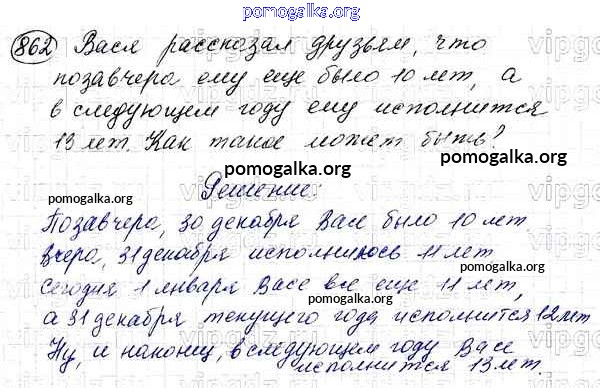 pomogalka.org
862 Вася рассказал друзьям, что
позавчера ему еще было 10 лет, а
в следующем году ему исполнится
13 лет. Как такое может быть?
pomogalka.org
pomogalka.org
pomogalka.org
Решение:
Позавчера, 30 декабря Васе было 10 лет.
Вчера, 31 декабря исполнилось 11 лет
pomogalka.org
Сегодня 1 января Васе все еще 11 лет,
pomogalka.org
а 31 декабря текущего года исполнится 12 лет
Ну, и наконец, в следующем году Васе
исполнится 13 лет.
pomogalka.org